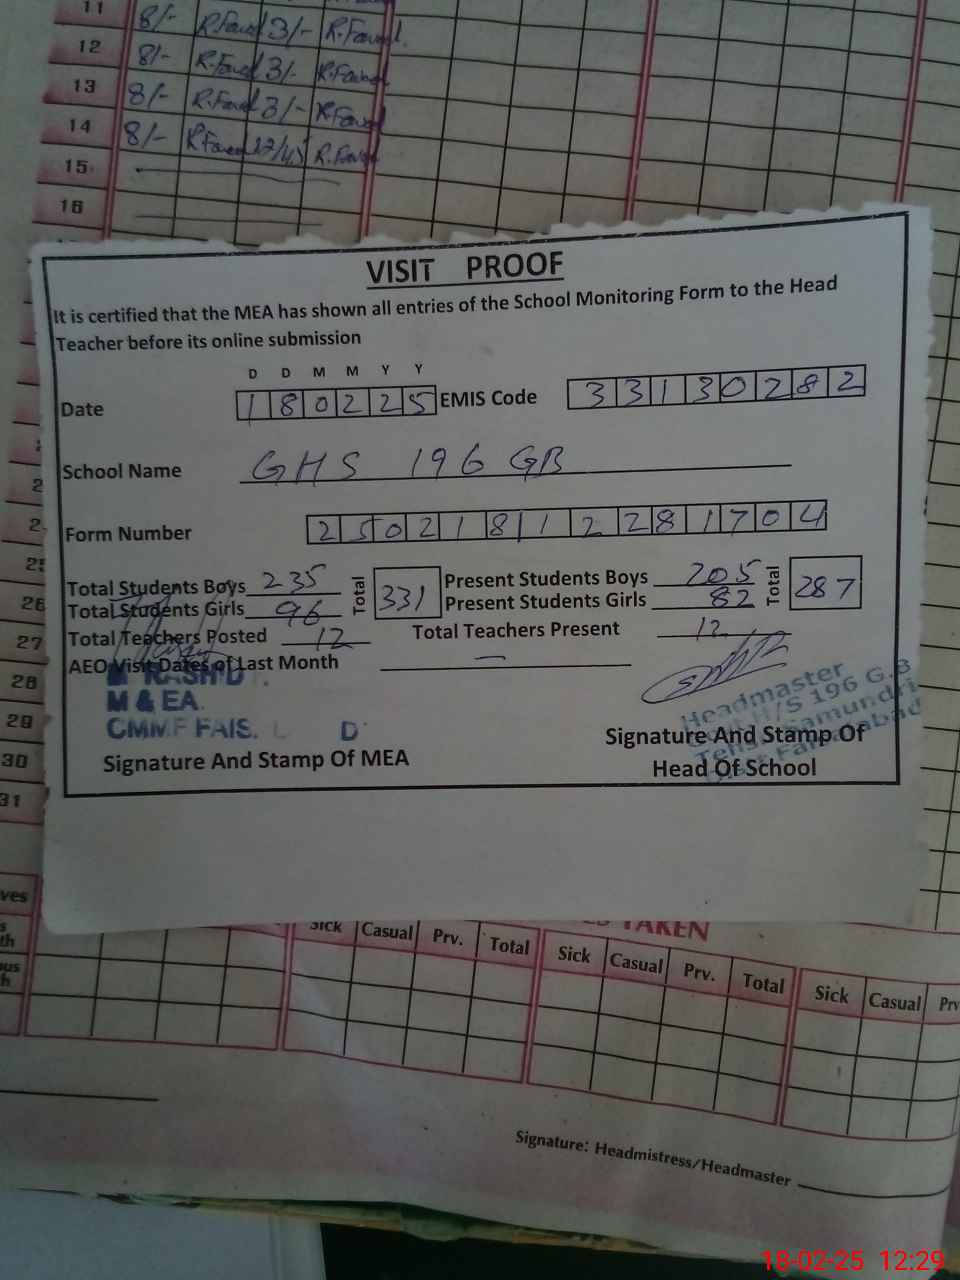 11 8/- R.Fawad 3/- R.Fawad.
12 8/- R.Fawad 3/- R.Fawad
13 8/- R.Fawad 3/- R.Fawad
14 8/- R.Fawad 12/45 R.Fawad
15
16
VISIT PROOF
It is certified that the MEA has shown all entries of the School Monitoring Form to the Head
Teacher before its online submission
D D M M Y Y
Date 180225 EMIS Code 33130282
School Name GHS 196 GB
Form Number 25021811 2281704
Total Students Boys 235 Total 331 Present Students Boys 205 Total 287
Total Students Girls 96 Present Students Girls 82
Total Teachers Posted 12 Total Teachers Present 12
AEO Visit Dates of Last Month —
M & EA
Headmaster
H/S 196 G.B
Signature And Stamp Of MEA
Signature And Stamp Of
Head Of School
26
27
28
29
30
31
TAKEN
Sick Casual Prv. Total Sick Casual Prv. Total Sick Casual
Signature: Headmistress/Headmaster
18-02-25 12:29